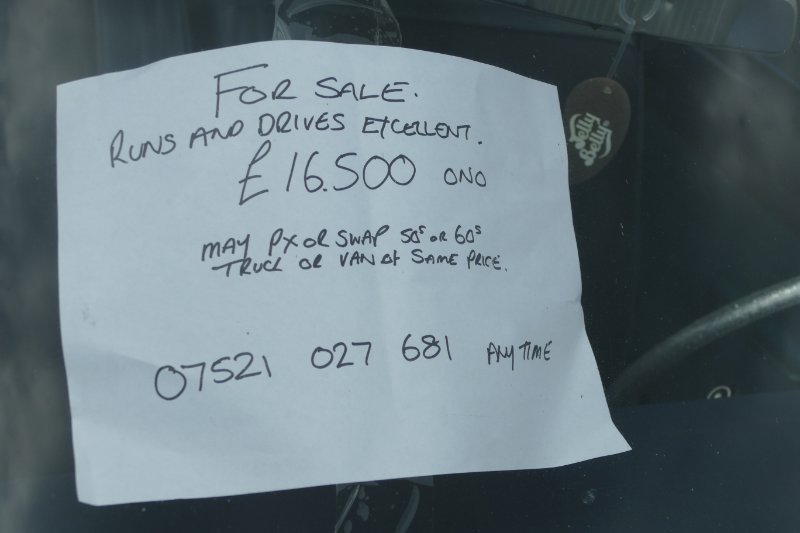 FOR SALE.
RUNS AND DRIVES EXCELLENT.
£16.500 ONO
MAY PX OR SWAP 50s OR 60s
TRUCK OR VAN AT SAME PRICE.
07521 027 681 ANYTIME
Jelly
Belly